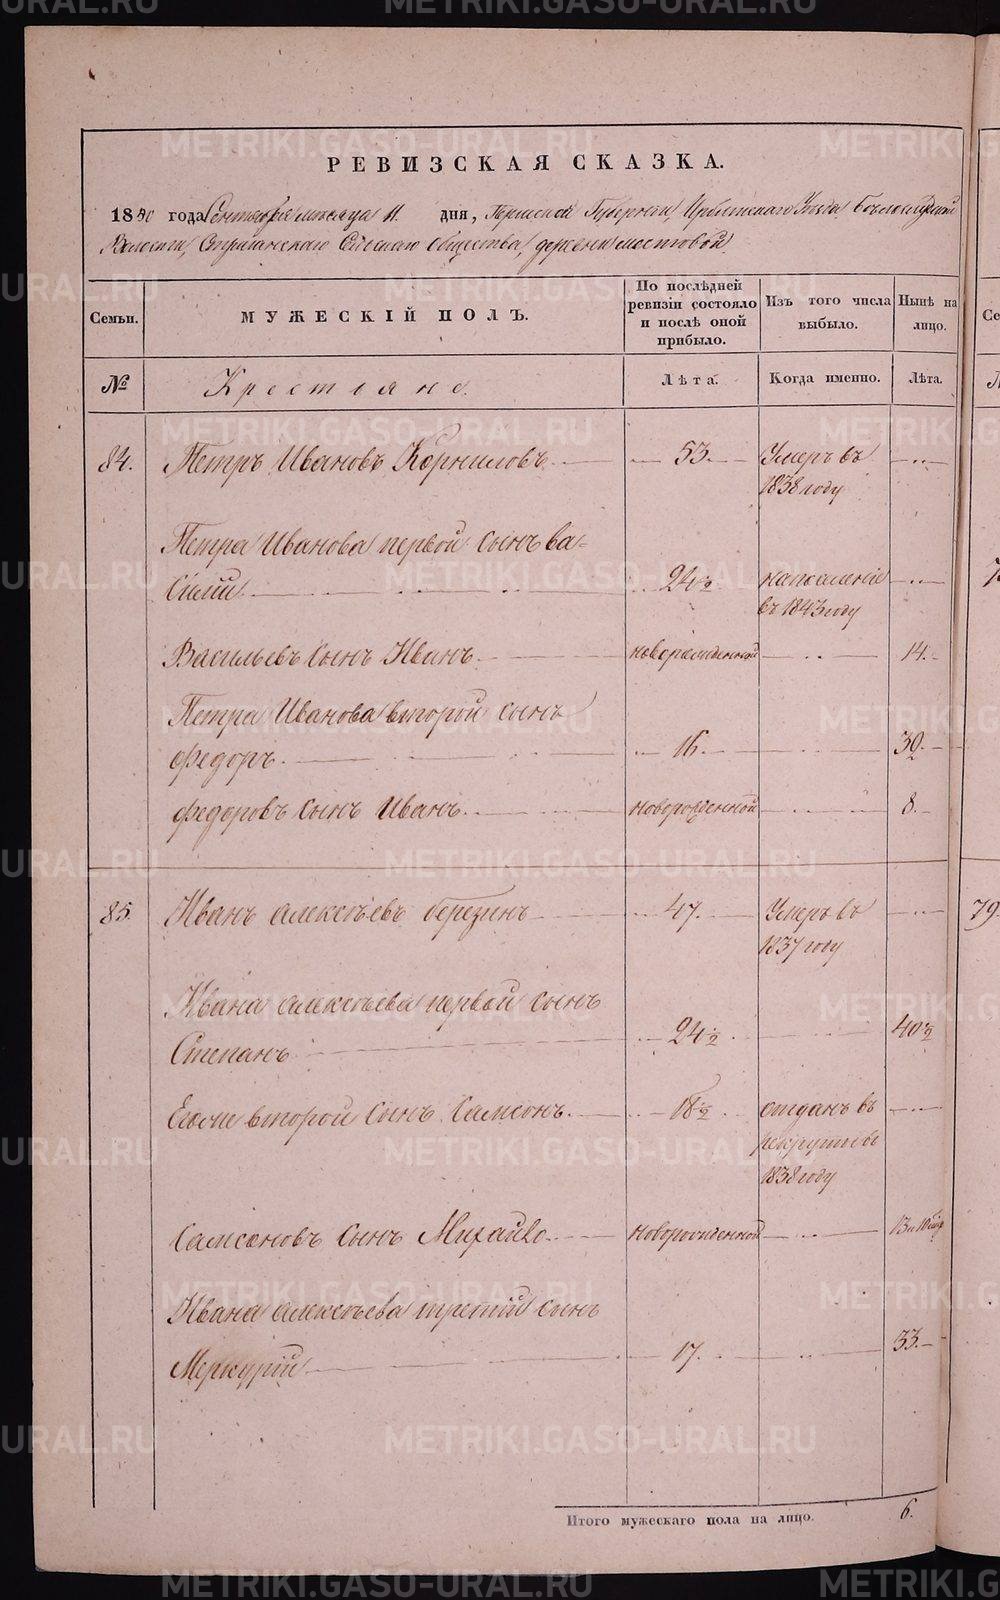 РЕВИЗСКАЯ СКАЗКА.
1850 года Сентября месяца 11 дня, Пермской Губернии, Ирбитскаго Уезда Белослудской
Волости, Стриганскаго Сельскаго общества, деревни мостовой
Семьи.
МУЖЕСКІЙ ПОЛЪ.
По послѣдней ревизіи состояло и послѣ оной прибыло.
Изъ того числа выбыло.
Нынѣ на лицо.
№
Крестьяне.
Лѣта.
Когда именно.
Лѣта.
84. Петръ Ивановъ Корниловъ 53. Умеръ въ
1838 году
Петра Иванова первой сынъ Ва-
силій 24½ на поселеніе
въ 1843 году
Васильевъ сынъ Иванъ новорожденный 14.
Петра Иванова второй сынъ
Федоръ. 16.
Федоровъ сынъ Иванъ. новорожденной 8.
85. Иванъ Алексѣевъ Березинъ 47. Умеръ въ
1837 году
Ивана Алексѣева первой сынъ
Степанъ 24½ 40½
Егоже второй сынъ Самсонъ. 18½ отданъ въ
рекруты въ
1838 году
Самсоновъ сынъ Михайло. новорожденной
Ивана Алексѣева третій сынъ
Меркурій 17. 33.
Итого мужескаго пола на лицо. 6.
79.
METRIKI.GASO-URAL.RU